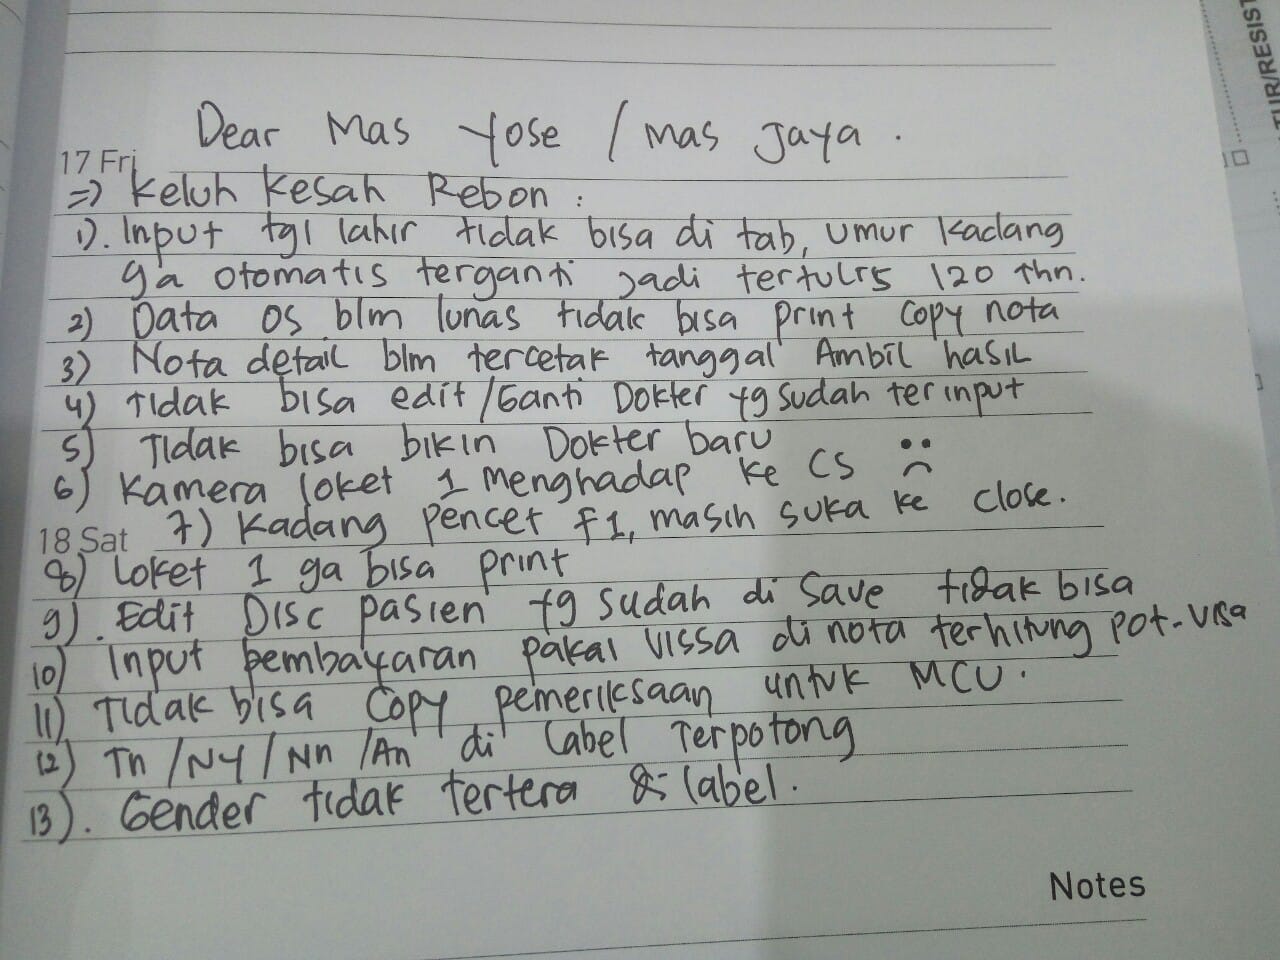 Dear Mas Yose / Mas Jaya.
17 Fri
=> Keluh Kesah Rebon :
1). Input tgl lahir tidak bisa di tab, umur kadang
ga otomatis terganti jadi tertulis 120 thn.
2) Data os blm lunas tidak bisa print copy nota
3) Nota detail blm tercetak tanggal Ambil hasil
4) Tidak bisa edit / Ganti Dokter yg sudah terinput
5) Tidak bisa bikin Dokter baru
6) Kamera loket 1 menghadap ke CS :(
7) Kadang pencet F1, masih suka ke close.
18 Sat
8) Loket 1 ga bisa print
9). Edit Disc pasien yg sudah di save tidak bisa
10) Input pembayaran pakai Vissa di nota terhitung pot-visa
11) Tidak bisa Copy pemeriksaan untuk MCU.
12) Tn / NY / Nn / An di label Terpotong
13). Gender tidak tertera di label.
Notes
TUR/RESIST